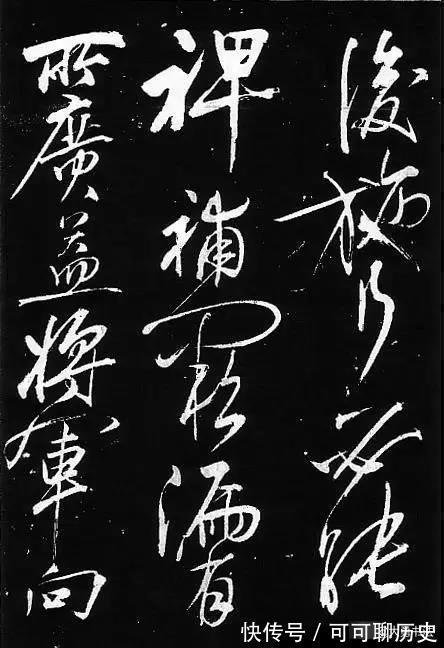 後施行必能
裨補闕漏有
所廣益將軍向
快传号 / 可可聊历史